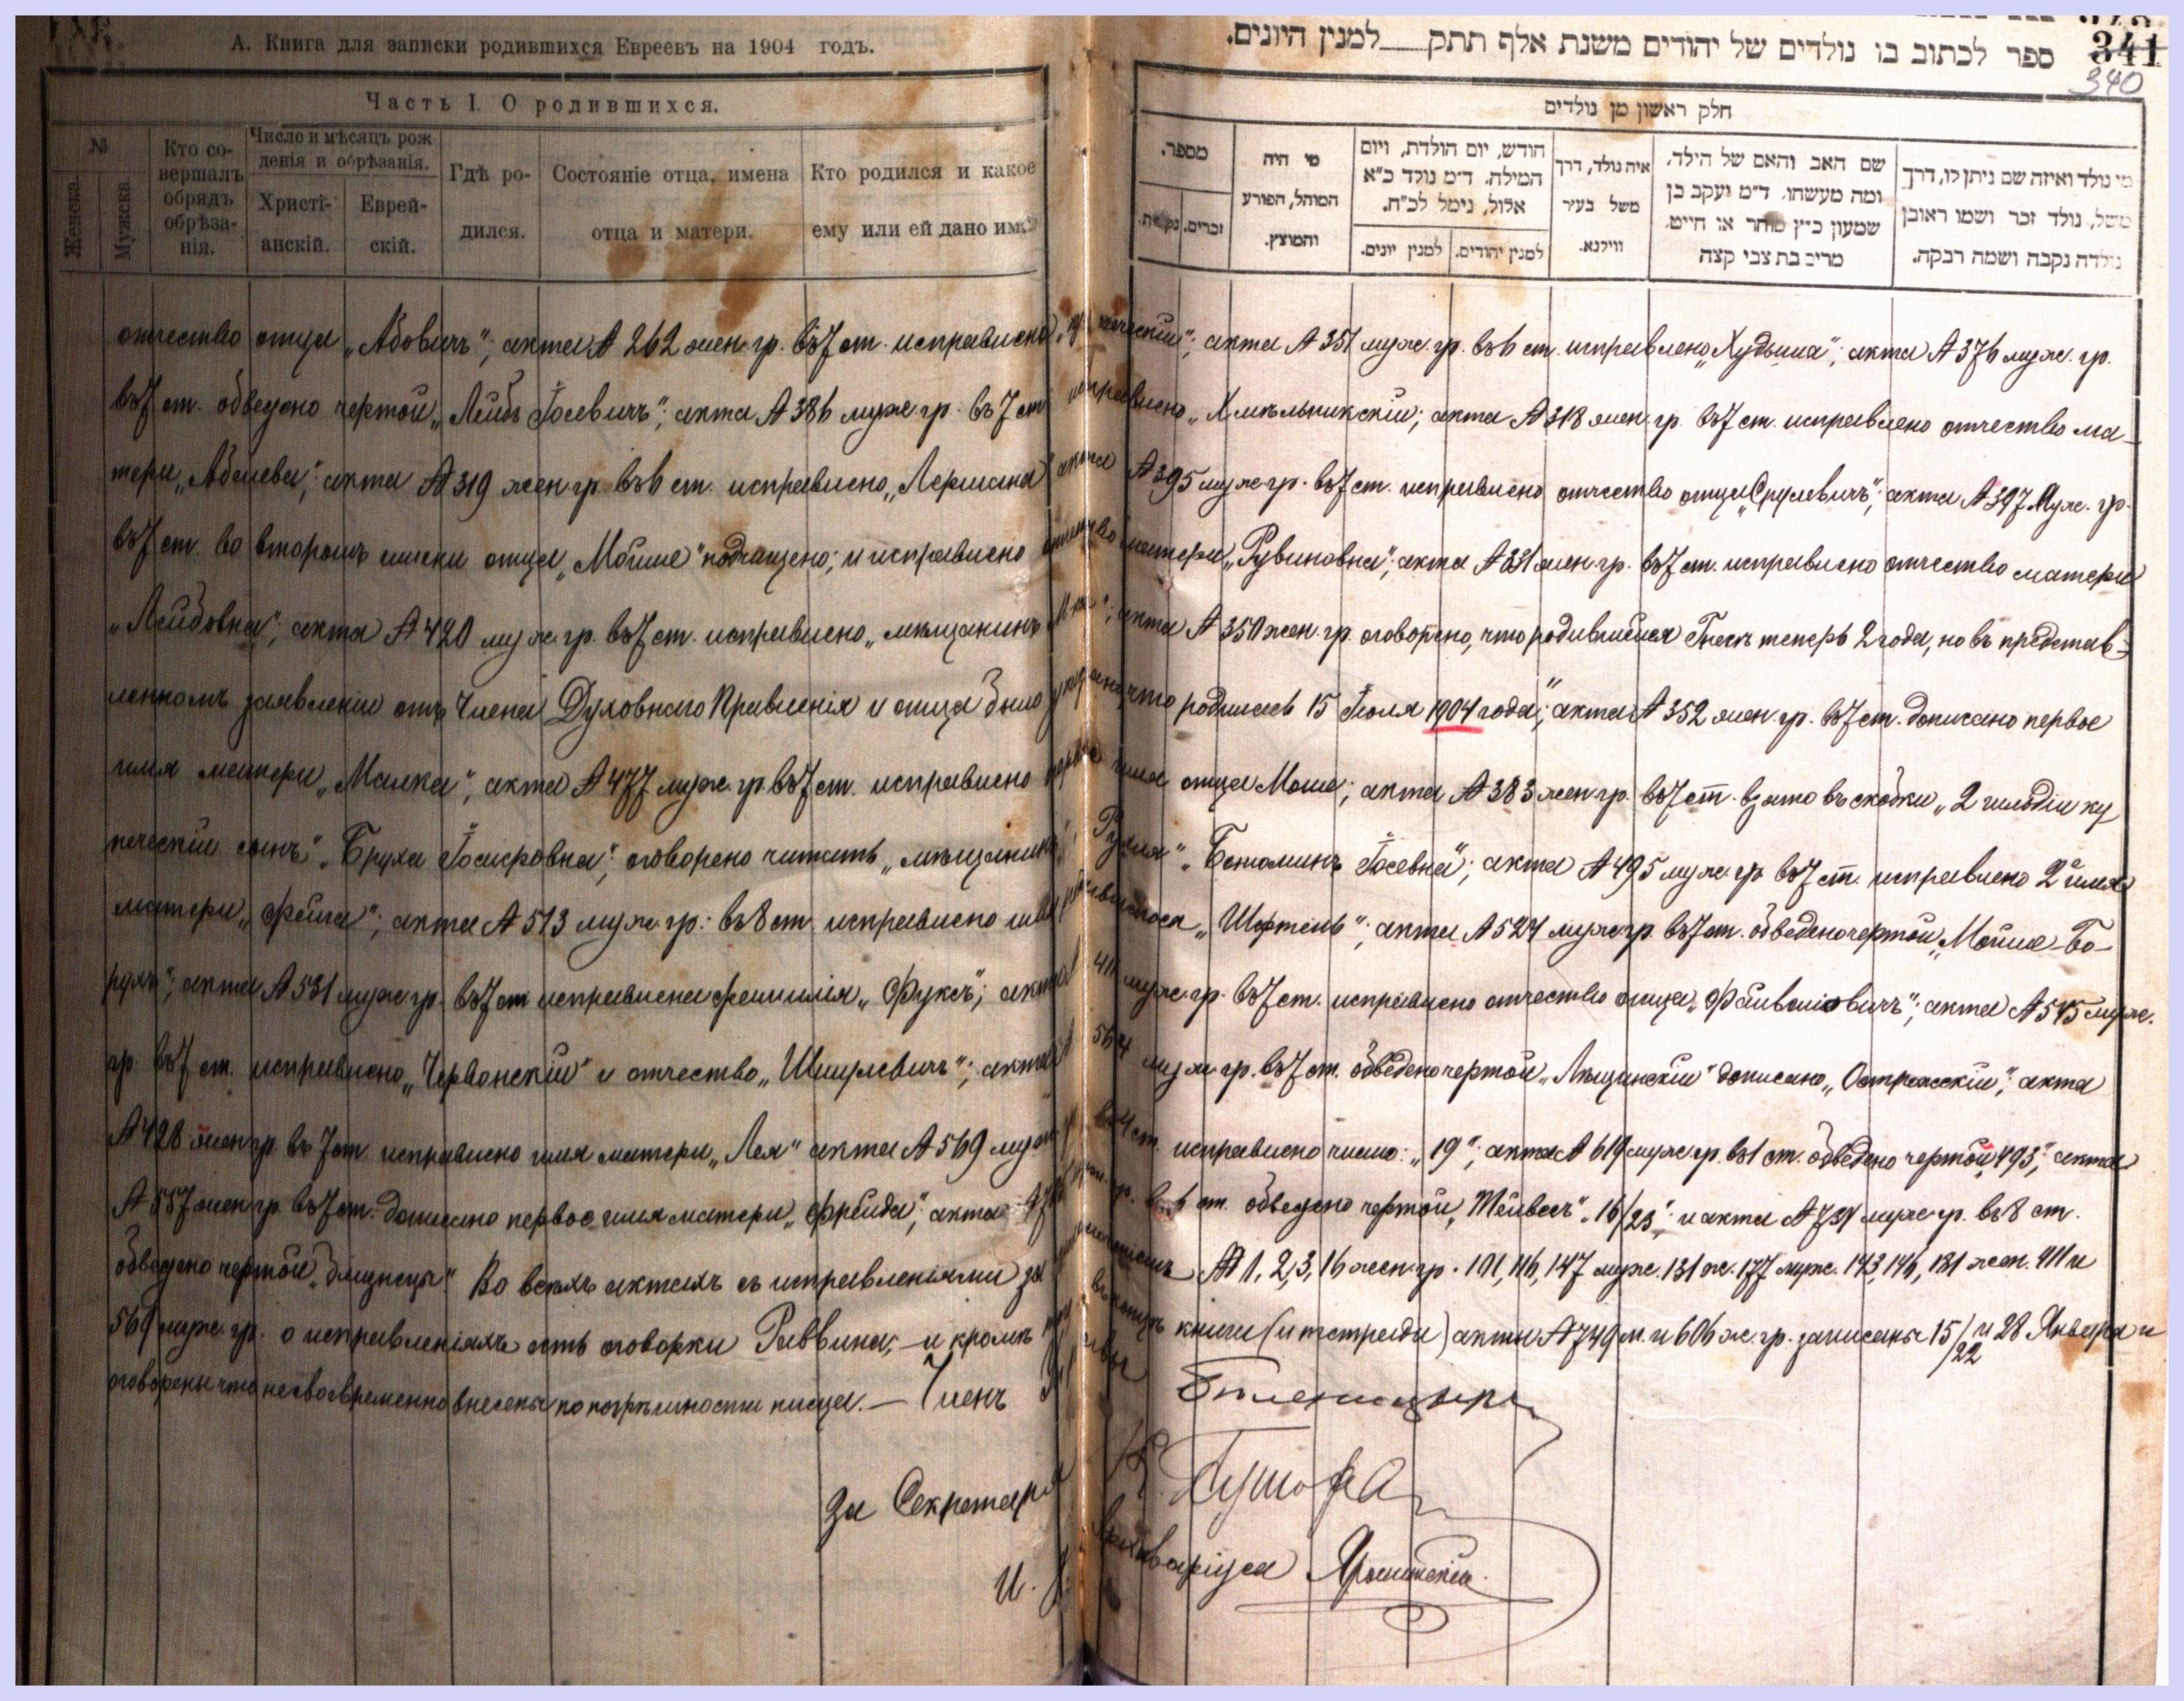 А. Книга для записки родившихся Евреевъ на 1904 годъ.
Часть I. О родившихся.
№
Женска.
Мужска.
Кто со-
вершалъ
обрядъ
обрѣза-
нія.
Число и мѣсяцъ рож
денія и обрѣзанія.
Христі-
анскій.
Еврей-
скій.
Гдѣ ро-
дился.
Состояніе отца, имена
отца и матери.
Кто родился и какое
ему или ей дано имя
ספר לכתוב בו נולדים של יהודים משנת אלף תתק למנין היונים.
341
340
חלק ראשון מן נולדים
מספר.
זכרים.
מי היה
המוהל, הפורע
והמוצץ.
חודש, יום הולדת, ויום
המילה. ד״מ נולד כ״א
אלול, נימל לכ״ח.
למנין יהודים.
למנין יונים.
איה נולד, דרך
משל בעיר
ווילנא.
שם האב והאם של הילד,
ומה מעשהו. ד״מ יעקב בן
שמעון כ״ץ סוחר או חייט
מרים בת צבי קצה
מי נולד ואיזה שם ניתן לו, דרך
משל, נולד זכר ושמו ראובן
נולדה נקבה ושמה רבקה.
отчество отца „Абовичъ“; акта № 262 жен. гр. въ 7 ст. исправлено ; акта № 351 муж. гр. въ 6 ст. исправлено „Худыша“; акта № 376 муж. гр.
въ 7 ст. обведено чертой „Лейбъ Іосевичъ“; акта № 386 муж. гр. въ 7 ст исправлено „Хмѣльникскій; акта № 318 жен. гр. въ 7 ст. исправлено отчество ма-
тери „Абалева“; акта № 319 жен гр. въ 6 ст. исправлено „Лермана“ акта № 395 муж. гр. въ 7 ст. исправлено отчество отца „Срулевичъ“; акта № 397 муж. гр.
въ 7 ст. во второмъ имени отца „Мойше“ подчищено; и исправлено отчество матери „Рувиновна“; акта № 331 жен. гр. въ 7 ст. исправлено отчество матери
„Лейбовна“; акта № 420 муж. гр. въ 7 ст. исправлено „мѣщанинъ ; акта № 350 жен. гр. оговорено, что родившейся теперь 2 года, но въ представ-
ленномъ заявленіи отъ Члена Духовнаго Правленія и отца было указано, что родилась 15 Іюля 1904 года“; акта № 352 жен. гр. въ 7 ст. дописано первое
имя матери „Малка“; акта № 477 муж. гр. въ 7 ст. исправлено первое имя отца Моше; акта № 383 жен гр. въ 7 ст. взято въ скобки „2 гильдіи ку
печескій сынъ“ „Бруха Іосифовна“; оговорено читать „мѣщанинъ“; „Рухля“ „Беньоминъ Іосевна“; акта № 495 муж. гр. въ 7 ст. исправлено 2е имя
матери „Фейга“; акта № 513 муж. гр. въ 8 ст. исправлено имя родившагося „Шефтель“; акта № 524 муж. гр. въ 7 ст. обведено чертой „Мойше-Бо-
рухъ“; акта № 531 муж. гр. въ 7 ст исправлена фамилія „Фуксъ“; акта 411 муж. гр. въ 7 ст. исправлено отчество отца „Файвеліовичъ“; акта № 545 муж.
гр. въ 7 ст. исправлено „Червонскій“ и отчество „Шмулевичъ“; акта 564 муж. гр. въ 7 ст. обведено чертой „Лещинскій“ дописано „Острожскій“; акта
№ 428 жен гр. въ 7 ст. исправлено имя матери „Лея“ акта № 569 муж гр въ 4 ст. исправлено число: „19“; акта № 619 муж гр. въ 1 ст. обведено чертой „493“; акта
№ 557 жен гр. въ 7 ст. дописано первое имя матери „Фрейда“; акта гр. въ 6 ст. обведено чертой „Тейвесъ“ „16/23“; и акта № 734 муж гр. въ 8 ст.
обведено чертой „близнецы“. Во всѣхъ актахъ съ исправленіями за исключеніемъ №№ 1, 2, 3, 16 жен. гр. 101, 116, 147 муж. 131 ж. 177 муж. 143, 146, 181 жен. 411 и
564 муж. гр. о исправленіяхъ есть оговорки Раввина; — и кромѣ въ концѣ книги (и тетради) акты № 749 м. и 606 ж. гр. записаны 15/22 и 28 Января и
оговорены что несвоевременно внесены по погрѣшности писца. — Членъ Управы
За Секретаря
И. д. Архиваріуса